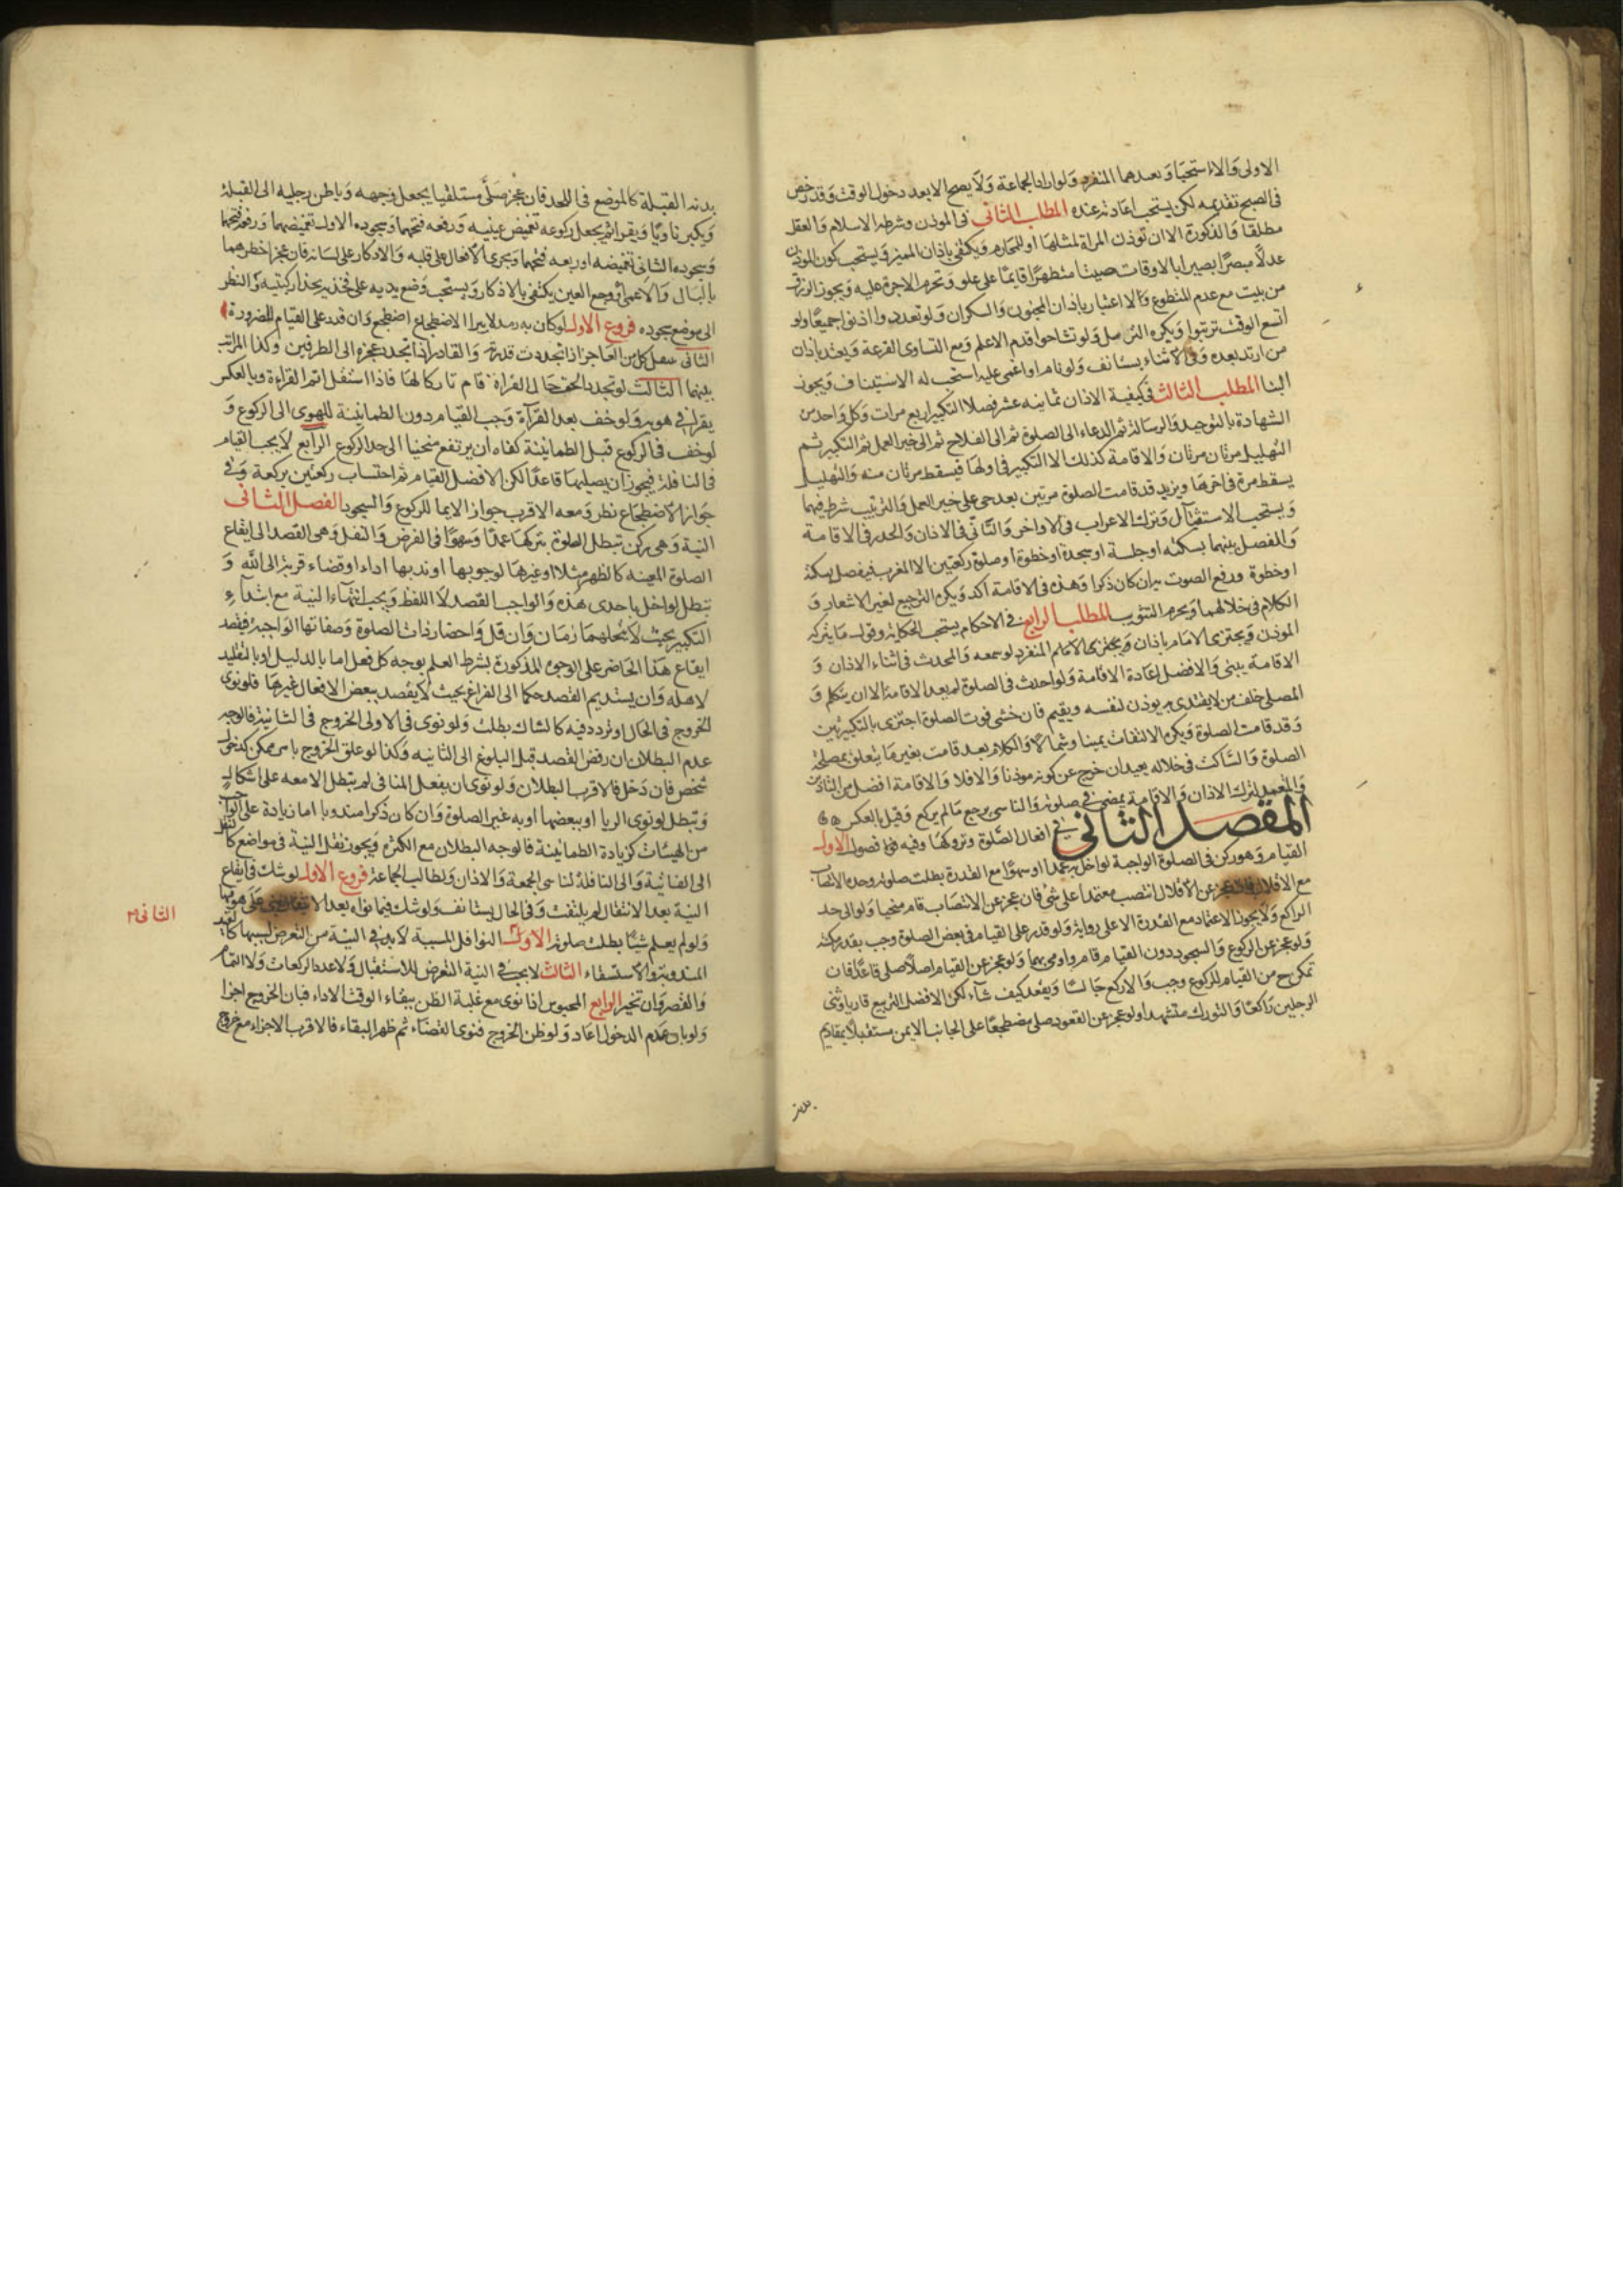 الاولى والا استحبابا وبعدهما المنفرد ولو اراد الجماعة ولا يصح الا بعد دخول الوقت وقد رخص
فى الصبح تقديمه لكن يستحب اعادته عنده المطلب الثانى فى المؤذن وشرطه الاسلام والعقل
مطلقا والذكورة الا ان تؤذن المراة لمثلها او للمحارم ويكتفى باذان المميز ويستحب كون المؤذن
عدلا مبصرا بصيرا بالاوقات صيتا متطهرا قايما على علو وتحرم الاجرة عليه ويجوز الرزق
من بيت مع عدم المتطوع ولا اعتبار باذان المجنون والسكران ولو تعددوا اذنوا جميعا ولو
اتسع الوقت ترتبوا ويكره التراسل ولو تشاحوا قدم الاعلم ومع التساوى القرعة ويعتد باذان
من ارتد بعده وفى الاثناء يستانف ولو نام او اغمى عليه استحب له الاستيناف ويجوز
البنا المطلب الثالث فى كيفية الاذان ثمانيه عشر فصلا التكبير اربع مرات وكل واحد من
الشهادة بالتوحيد والرسالة ثم الدعاء الى الصلوة ثم الى الفلاح ثم الى خير العمل ثم التكبير ثم
التهليل مرتان مرتان والاقامة كذلك الا التكبير فى اولها فيسقط مرتان منه والتهليل
يسقط مرة فى اخرها ويزيد قد قامت الصلوة مرتين بعد حى على خير العمل والترتيب شرط فيهما
ويستحب الاستقبال وترك الاعراب فى الاواخر والتأنى فى الاذان والحدر فى الاقامة
والفصل بينهما بسكته او جلسة او سجدة او خطوة او صلوة ركعتين الا المغرب فيفصل بسكتة
او خطوة ورفع الصوت به ان كان ذكرا وهذه فى الاقامة اكد ويكره الترجيع لغير الاشعار و
الكلام فى خلالهما ويحرم التثويب المطلب الرابع فى الاحكام يستحب الحكاية وقول ما يتركه
المؤذن ويجتزى الامام باذان المنفرد لو سمعه والمحدث فى اثناء الاذان و
الاقامة يبنى والافضل اعادة الاقامة ولو احدث فى الصلوة لم يعد الاقامة الا ان يتكلم و
المصلى خلف من لا يقتدى به يوذن لنفسه ويقيم فان خشى فوت الصلوة اجتزى بالتكبيرتين
وقد قامت الصلوة ويكره الالتفات يمينا وشمالا والكلام بعد قد قامت بغير ما يتعلق بمصلحة
الصلوة والساكت فى خلاله يعيد ان خرج عن كونه مؤذنا والا فلا والاقامة افضل من التاذين
والمتعمد لترك الاذان والاقامة يمضى فى صلوته والناسى يرجع ما لم يركع وقيل بالعكس
المقصد الثانى فى افعال الصلوة وتروكها وفيه فصول الاول
القيام وهو ركن فى الصلوة الواجبة لو اخل به عمدا او سهوا مع القدرة بطلت صلوته وحده الانتصاب
مع الاقلال فان عجز عن الاقلال انتصب معتمدا على شئ فان عجز عن الانتصاب قام منحنيا ولو الى حد
الراكع ولا يجوز الاعتماد مع القدرة الا على رواية ولو قدر على القيام فى بعض الصلوة وجب بقدر مكنته
ولو عجز عن الركوع والسجود دون القيام قام واومى بهما ولو عجز عن القيام اصلا صلى قاعدا فان
تمكن ح من القيام للركوع وجب والا ركع جالسا ويقعد كيف شاء لكن الافضل التربيع قاريا وثنى
الرجلين راكعا والتورك متشهدا ولو عجز عن القعود صلى مضطجعا على الجانب الايمن مستقبلا بمقاديم
بدنه
بدنه القبلة كالموضع فى اللحد فان عجز صلى مستلقيا يجعل وجهه وباطن رجليه الى القبلة
ويكبر ناويا ويقرا ثم يجعل ركوعه تغميض عينيه ورفعه فتحهما وسجوده الاول تغميضهما ورفعه فتحهما
وسجوده الثانى تغميضه ورفعه فتحهما ويجرى الافعال على قلبه والاذكار على لسانه فان عجز اخطرهما
بالبال والاعمى او وجع العين يكتفى بالاذكار ويستحب وضع يديه على فخذيه بحذا ركبتيه والنظر
الى موضع سجوده فروع الاول لو كان به رمد لا يبرا الا بالاضطجاع اضطجع وان قدر على القيام للضرورة
الثانى ينتقل كل من العاجز اذا تجددت قدرته والقادر اذا تجدد عجزه الى الطرفين وكذا المراتب
بينهما الثالث لو تجدد الخف حال القراءة قام تاركا لها فاذا استقل اتم القراءة وبالعكس
يقرا فى هويه ولو خف بعد القرآءة وجب القيام دون الطمانينة للهوى الى الركوع و
لو خف فى الركوع قبل الطمانينة كفاه ان يرتفع منحنيا الى حد الراكع الرابع لا يجب القيام
فى النافلة فيجوز ان يصليها قاعدا لكن الافضل القيام ثم احتساب ركعتين بركعة وفى
جواز الاضطجاع نظر ومعه الاقرب جواز الايما للركوع والسجود الفصل الثانى
النية وهى ركن تبطل الصلوة بتركها عمدا وسهوا فى الفرض والنفل وهى القصد الى ايقاع
الصلوة المعينه كالظهر مثلا او غيرها لوجوبها او ندبها اداء او قضاء قربة الى الله و
تبطل لو اخل باحدى هذه والواجب القصد لا اللفظ ويجب انتهاء النية مع ابتداء
التكبير بحيث لا يتخللهما زمان وان قل واحضار ذات الصلوة وصفاتها الواجبة فيقصد
ايقاع هذا الحاضر على الوجوه المذكورة بشرط العلم بوجه كل فعل اما بالدليل او بالتقليد
لاهله وان يستديم القصد حكما الى الفراغ بحيث لا يقصد ببعض الافعال غيرها فلو نوى
الخروج فى الحال او تردد فيه كالشاك بطلت ولو نوى فى الاولى الخروج فى الثانية فالوجه
عدم البطلان ان رفض القصد قبل البلوغ الى الثانيه وكذا لو علق الخروج بامر ممكن كدخول
شخص فان دخل فالاقرب البطلان ولو نوى ان يفعل المنافى لم يبطل الا معه على اشكال
وتبطل لو نوى الريا او ببعضها او به غير الصلوة وان كان ذكرا مندوبا اما زيادة على الواجب
من الهيئات كزيادة الطمانينة فالوجه البطلان مع الكثرة ويجوز نقل النية فى مواضع كالنقل
الى الفائتة والى النافلة لناسى الجمعة والاذان ولطالب الجماعة فروع الاول لو شك فى ايقاع
النية بعد الانتقال لم يلتفت وفى الحال يستانف ولو شك فيما نواه بعد الانتقال بنى على ما هو فيها
ولو لم يعلم شيئا بطلت صلوته النوافل المسببة لا بد فى النية من التعرض لسببها كالعيد
المندوبة والاستسقاء الثالث لا يجب فى النية التعرض للاستقبال ولا عدد الركعات ولا التمام
والقصر وان تخير الرابع المحبوس اذا نوى مع غلبة الظن ببقاء الوقت الاداء فبان الخروج اجزا
ولو بان عدم الدخول اعاد ولو ظن الخروج فنوى القضاء ثم ظهر البقاء فالاقرب الاجزاء مع خروج
الثانى